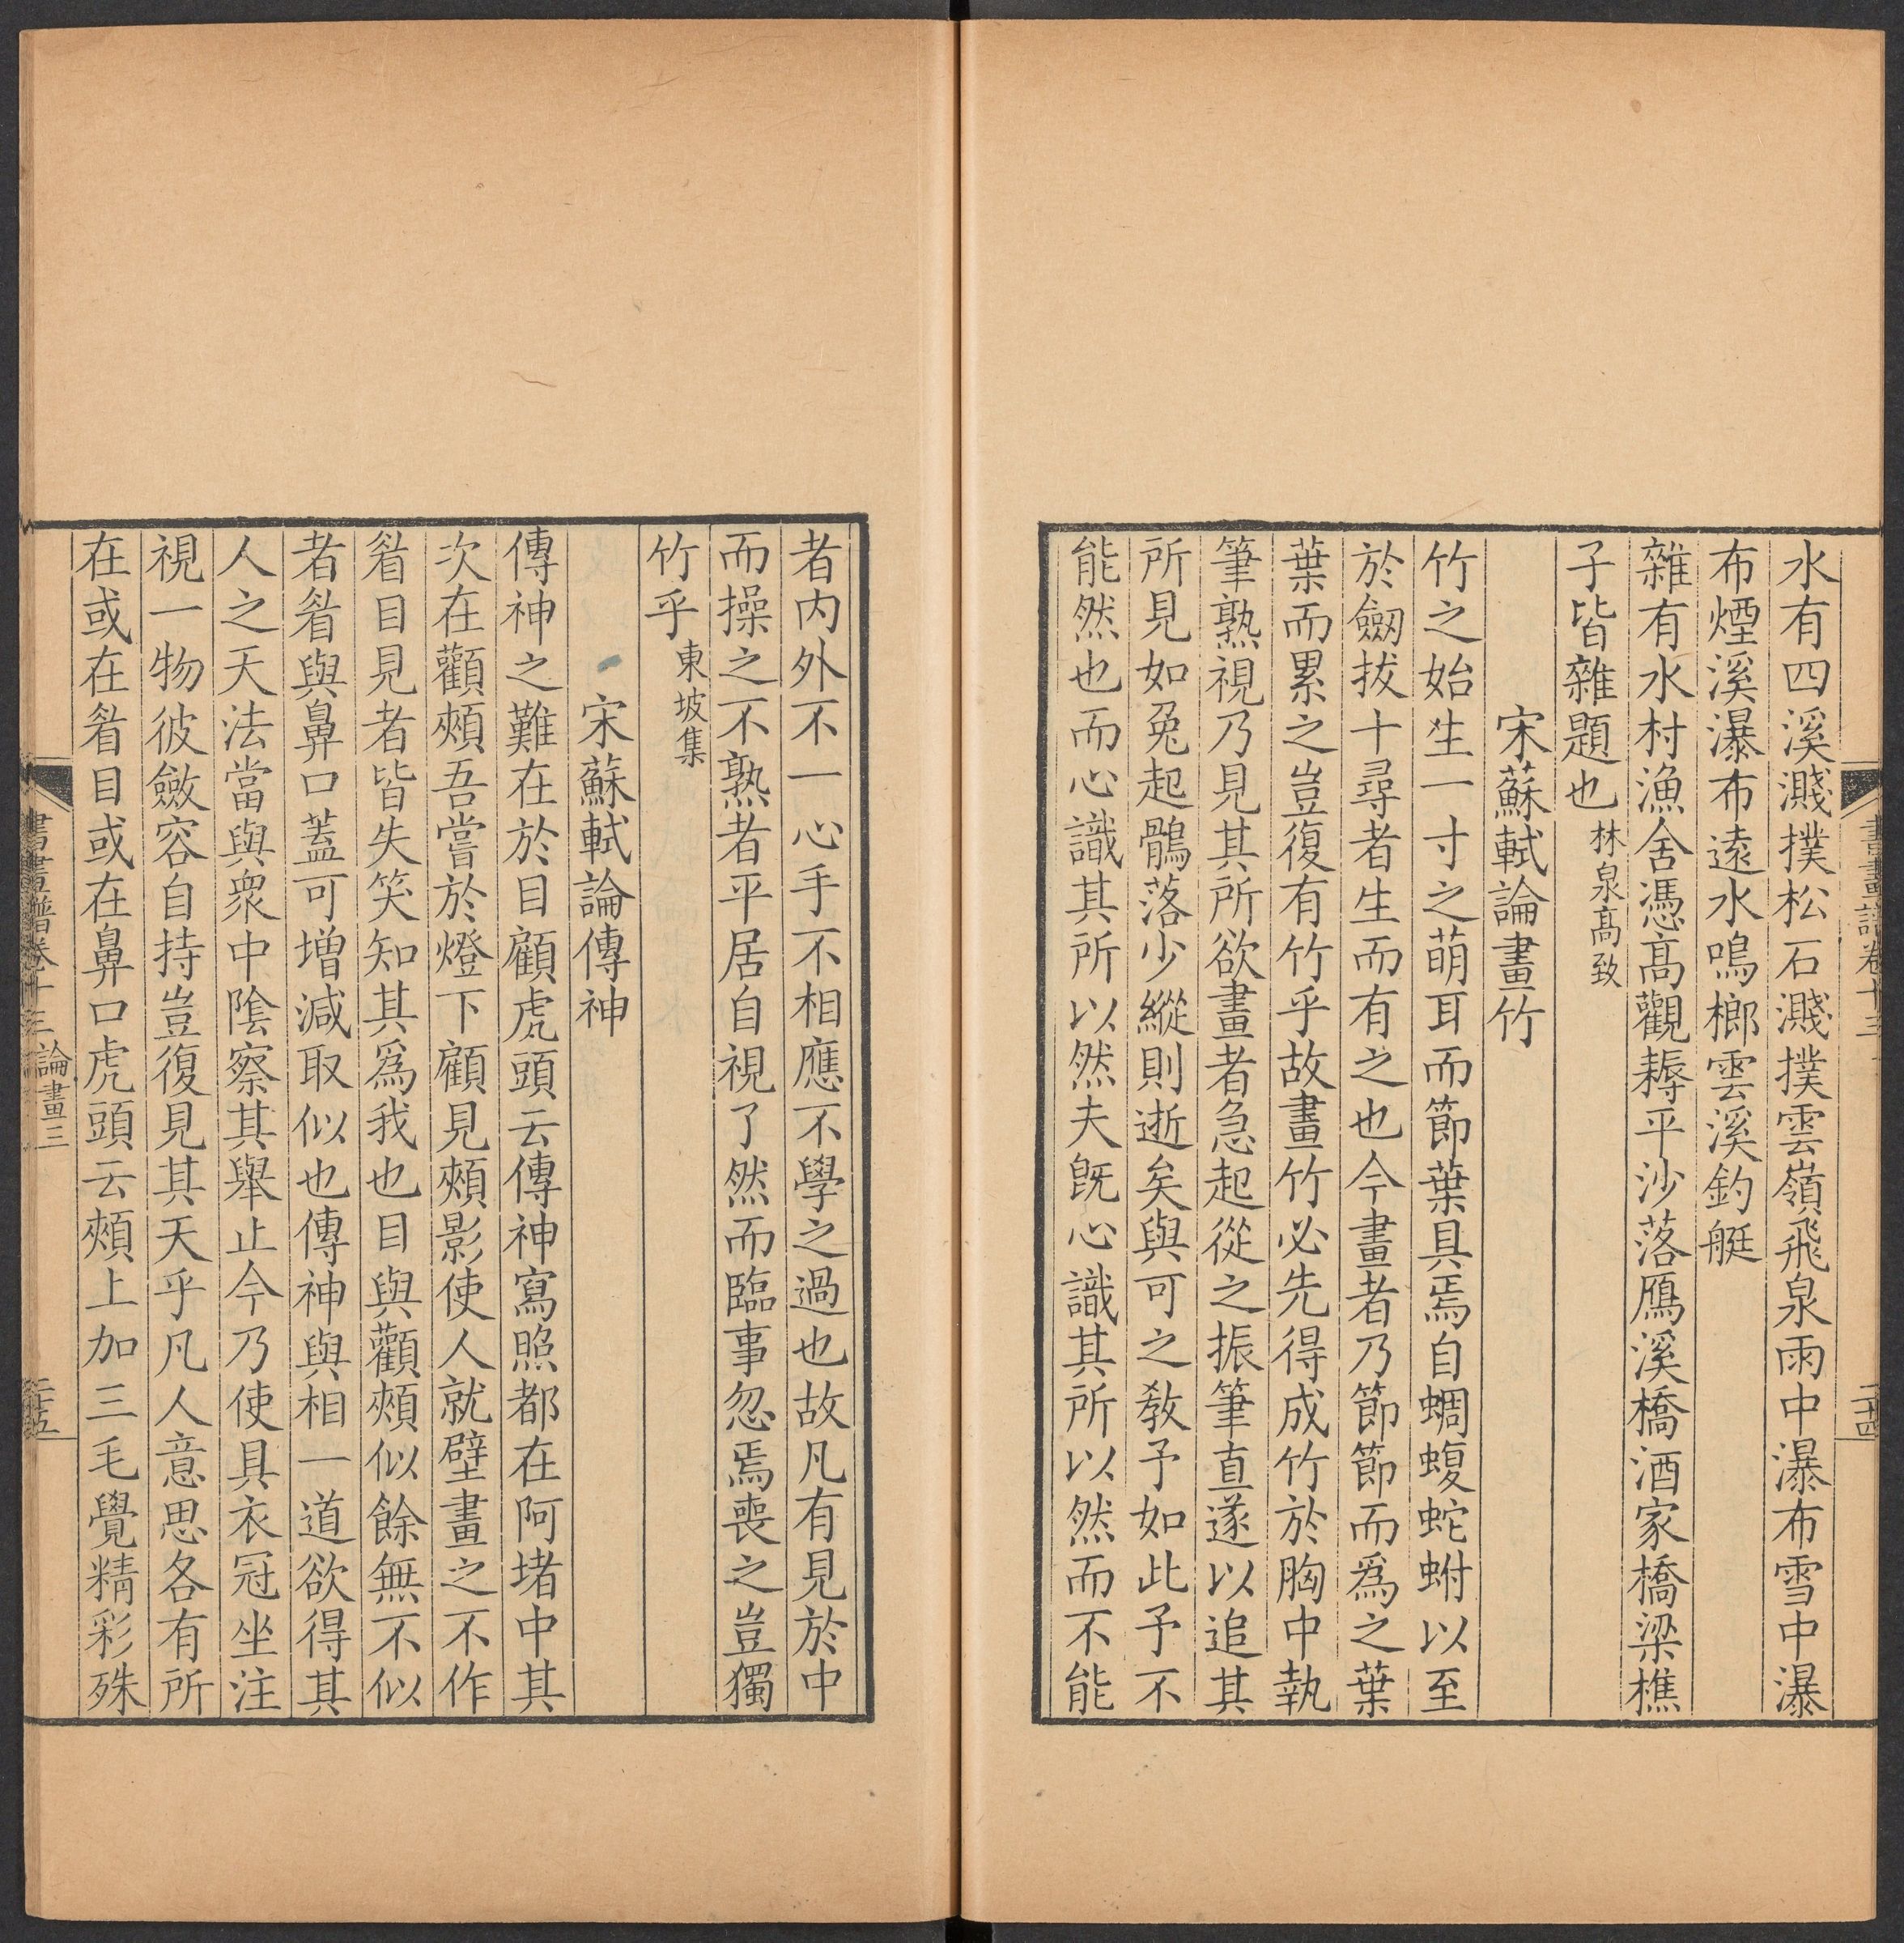 書畫譜卷十三
二十四
水有四溪濺撲松石濺撲雲嶺飛泉雨中瀑布雪中瀑
布煙溪瀑布遠水鳴榔雲溪釣艇
雜有水村漁舍憑髙觀耨平沙落鴈溪橋酒家橋梁樵
子皆雜題也林泉髙致
宋蘇軾論畫竹
竹之始生一寸之萌耳而節葉具焉自蜩蝮蛇蚹以至
於劒拔十尋者生而有之也今畫者乃節節而為之葉
葉而累之豈復有竹乎故畫竹必先得成竹於胸中執
筆熟視乃見其所欲畫者急起從之振筆直遂以追其
所見如兔起鶻落少縱則逝矣與可之敎予如此予不
能然也而心識其所以然夫旣心識其所以然而不能
者内外不一心手不相應不學之過也故凡有見於中
而操之不熟者平居自視了然而臨事忽焉喪之豈獨
竹乎東坡集
宋蘇軾論傳神
傳神之難在於目顧虎頭云傳神寫照都在阿堵中其
次在顴頰吾嘗於燈下顧見頰影使人就壁畫之不作
眉目見者皆失笑知其爲我也目與顴頰似餘無不似
者眉與鼻口蓋可增減取似也傳神與相一道欲得其
人之天法當與衆中陰察其舉止今乃使具衣冠坐注
視一物彼斂容自持豈復見其天乎凡人意思各有所
在或在眉目或在鼻口虎頭云頰上加三毛覺精彩殊
書畫譜卷十三 論畫三
二十五